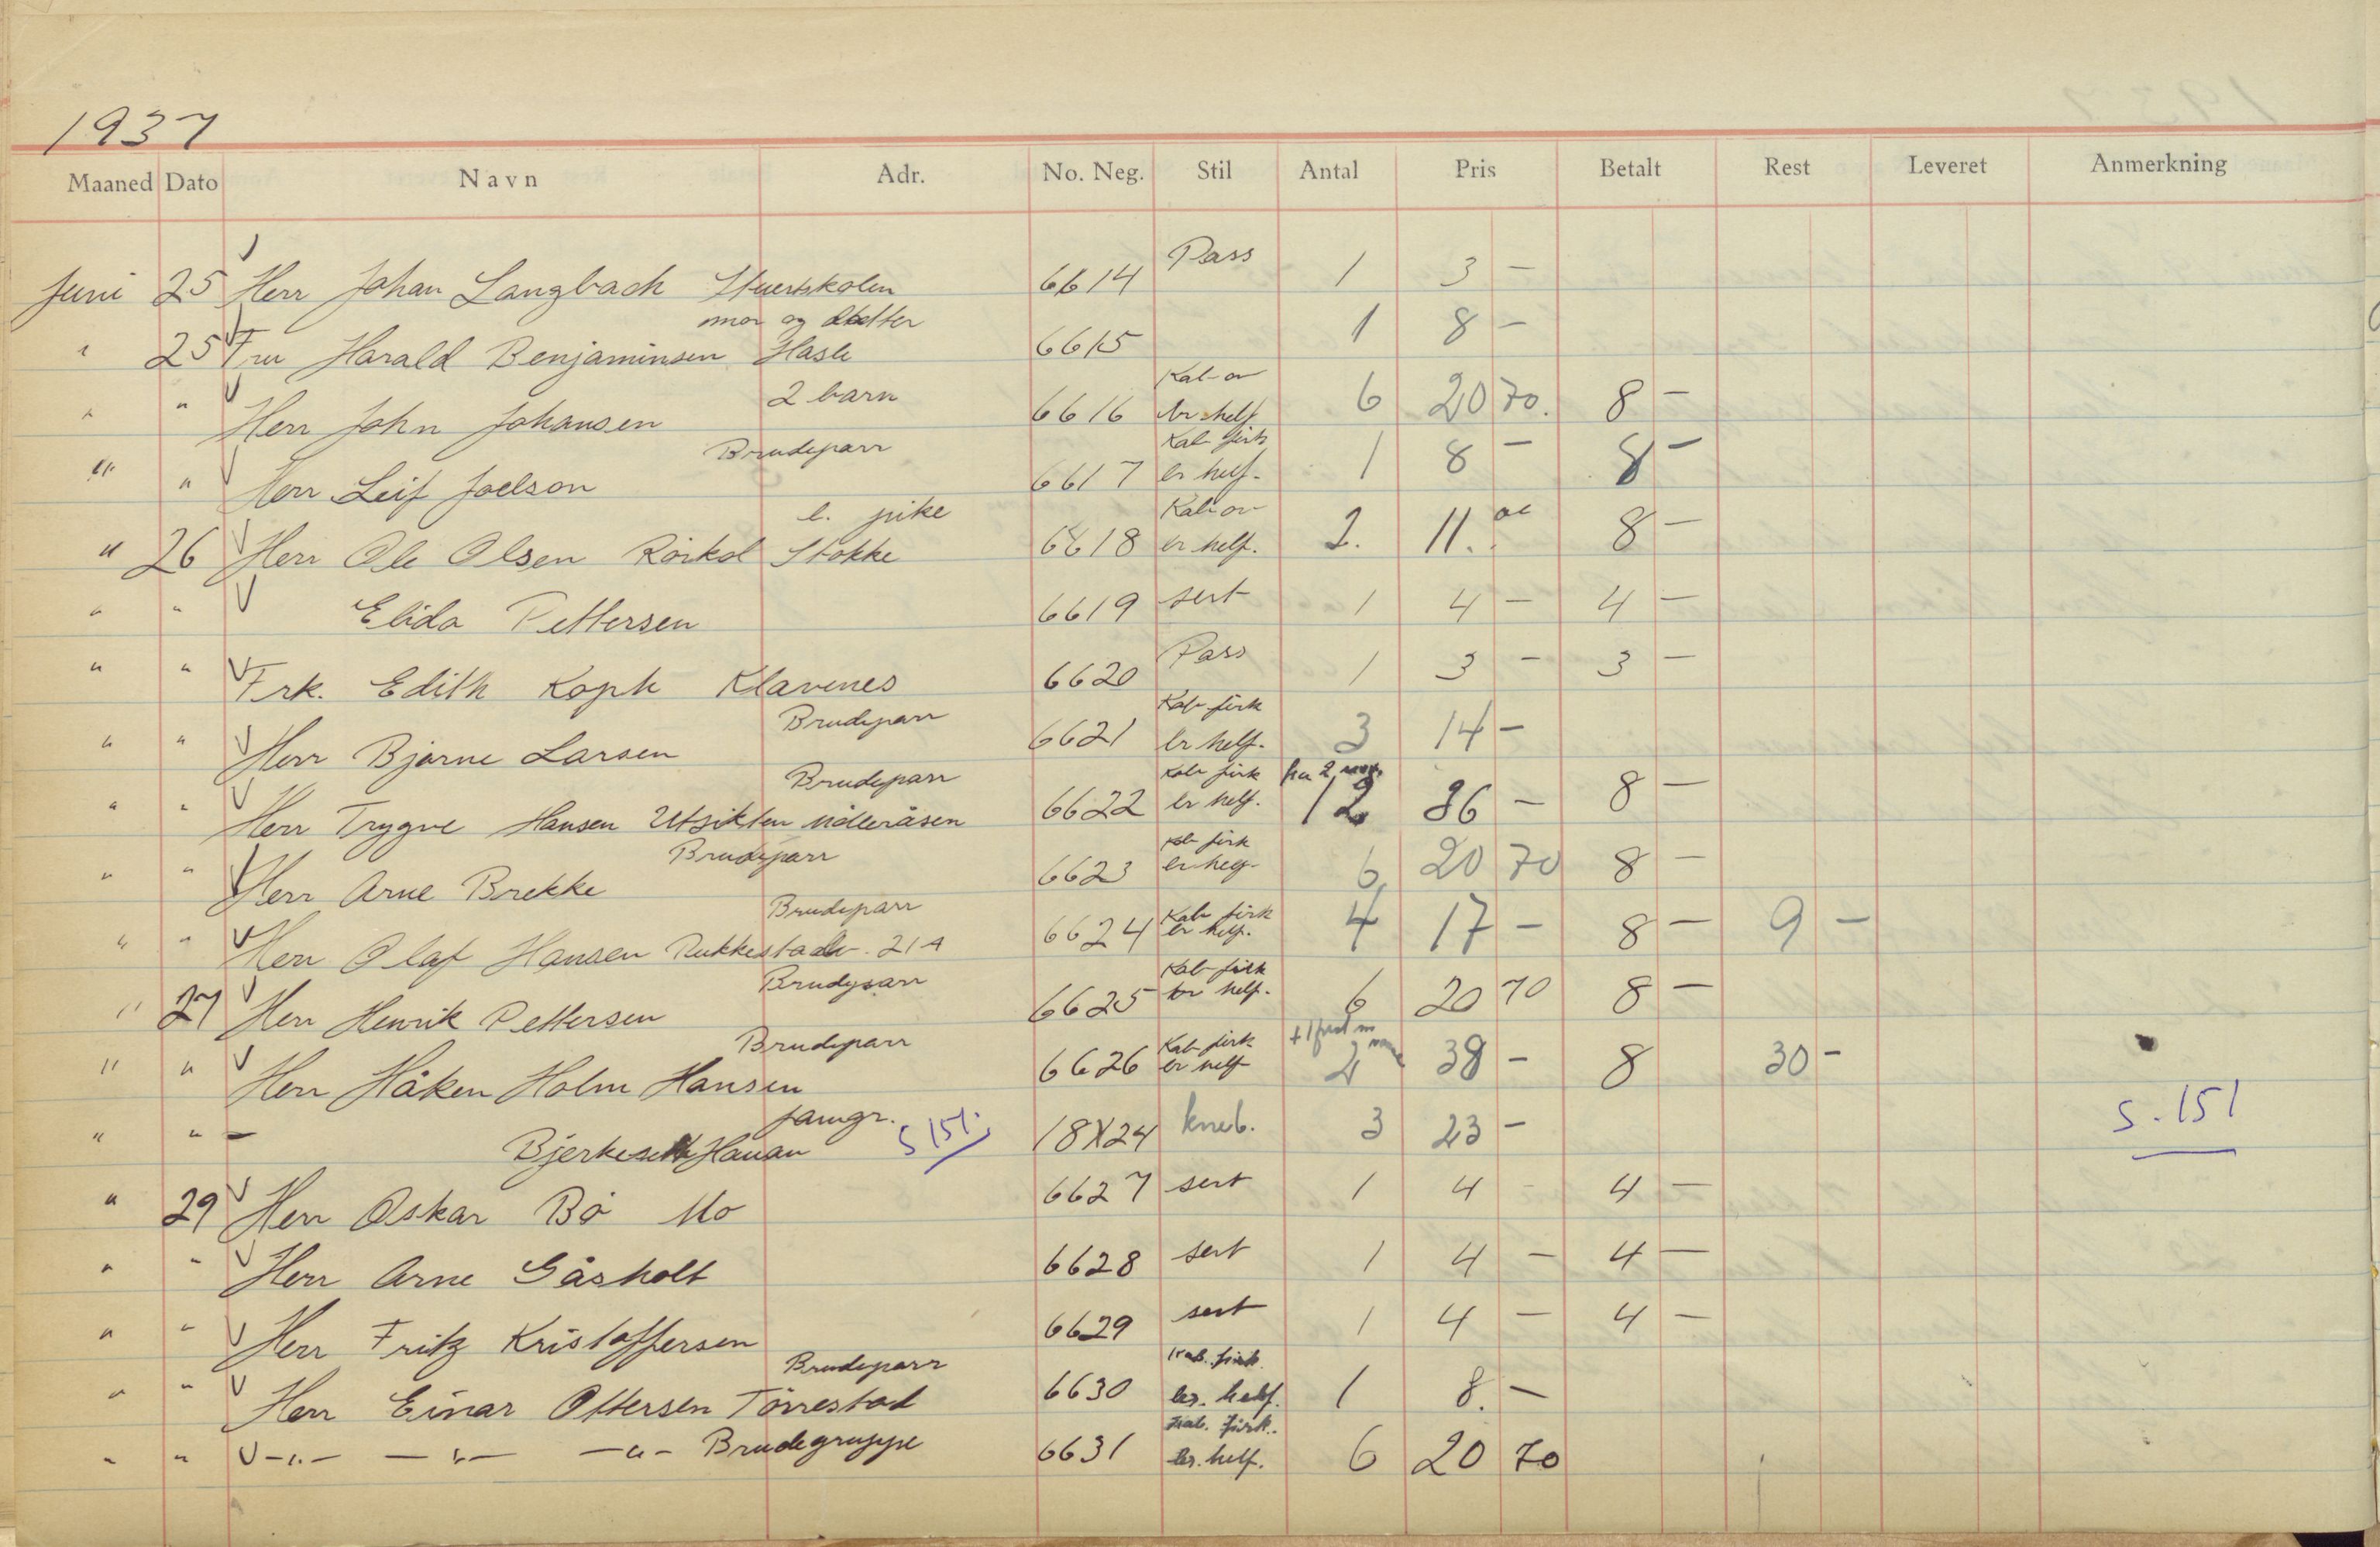 1937
Maaned Dato Navn Adr. No. Neg. Stil Antal Pris Betalt Rest Leveret Anmerkning
Pass
Juni 25 Herr Johan Langbach Stuertskolen 6614 1 3 —
mor og datter
" 25 Fru Harald Benjaminsen Hasle 6615 1 8 —
2 barn Kab-ov
" " Herr John Johansen 6616 br helf 6 20 70. 8 —
Brudeparr Kab firk
" " Herr Leif Joelson 6617 br helf. 1 8 — 8 —
l. pike Kab ov
" 26 Herr Ole Olsen Rörkol Stokke 6618 br helf. 2. 11. 8 —
" " Elida Pettersen 6619 sert 1 4 — 4 —
Pass
" " Frk. Edith Koph Klavenes 6620 1 3 — 3 —
Brudeparr Kab firk
" " Herr Bjarne Larsen 6621 br helf. 3 14 —
Brudeparr Kab firk fra 2
" " Herr Trygve Hansen Utsikten Mölleråsen 6622 br helf. 12 36 — 8 —
Brudeparr Kab firk
" " Herr Arne Brekke 6623 br helf. 6 20 70 8 —
Brudeparr Kab firk
" " Herr Olaf Hansen 214 6624 br helf. 4 17 — 8 — 9 —
Brudeparr Kab firk
" 27 Herr Henrik Pettersen 6625 br helf. 6 20 70 8 —
Brudeparr Kab firk
" " Herr Håken Holm Hansen 6626 br helf 38 — 8 30 —
famgr.
" " — Bjerkesett S 151. 18X24 kneb. 3 23 — S. 151
" 29 Herr Oskar Bö Mo 6627 sert 1 4 - 4 —
" " Herr Arne Gåsholt 6628 sert 1 4 — 4 —
" " Herr Fritz Kristoffersen 6629 sert 1 4 — 4 —
Brudeparr Kab. firk.
" " Herr Einar Ottersen Törrestad 6630 br. helf. 1 8. —
Kab. firk.
" " —"— —"— —"— Brudegruppe 6631 br. helf. 6 20 70